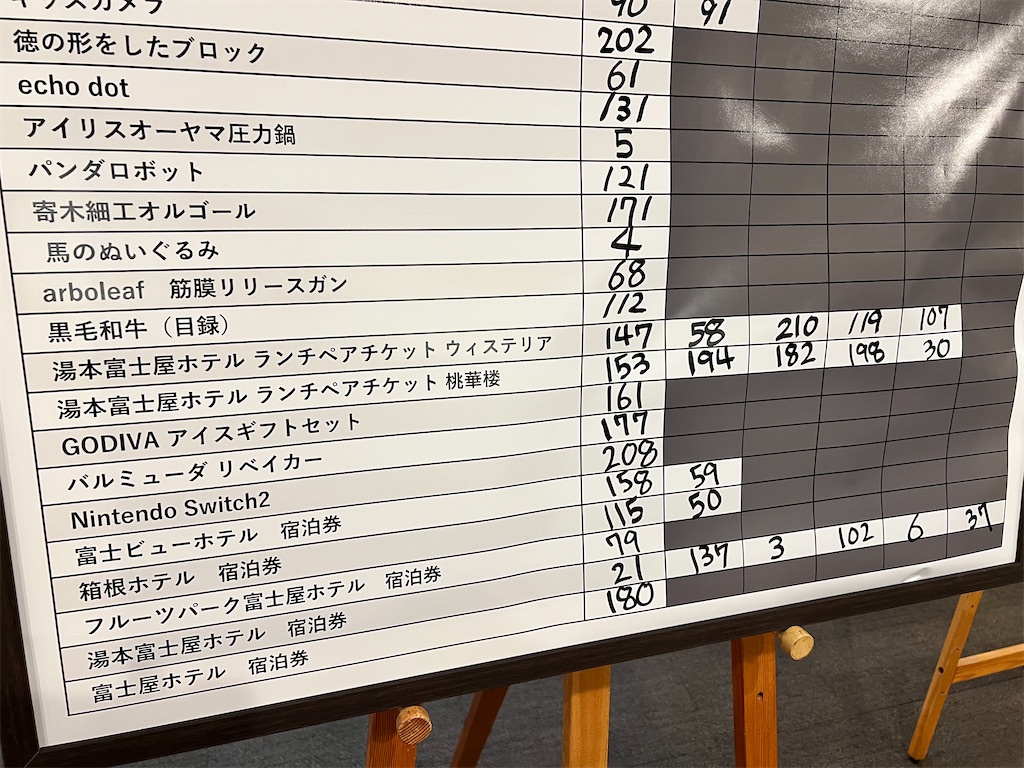 90 91
キッズカメラ 202
徳の形をしたブロック 61
echo dot 131
アイリスオーヤマ圧力鍋 5
パンダロボット 121
寄木細工オルゴール 171
馬のぬいぐるみ 4
arboleaf 筋膜リリースガン 68
黒毛和牛（目録） 112
湯本富士屋ホテル ランチペアチケット ウィステリア 147 58 210 119 107
湯本富士屋ホテル ランチペアチケット 桃華楼 153 194 182 198 30
GODIVA アイスギフトセット 161
バルミューダ リベイカー 177
Nintendo Switch2 208
富士ビューホテル 宿泊券 158 59
箱根ホテル 宿泊券 115 50
フルーツパーク富士屋ホテル 宿泊券 79
湯本富士屋ホテル 宿泊券 21 137 3 102 6 37
富士屋ホテル 宿泊券 180